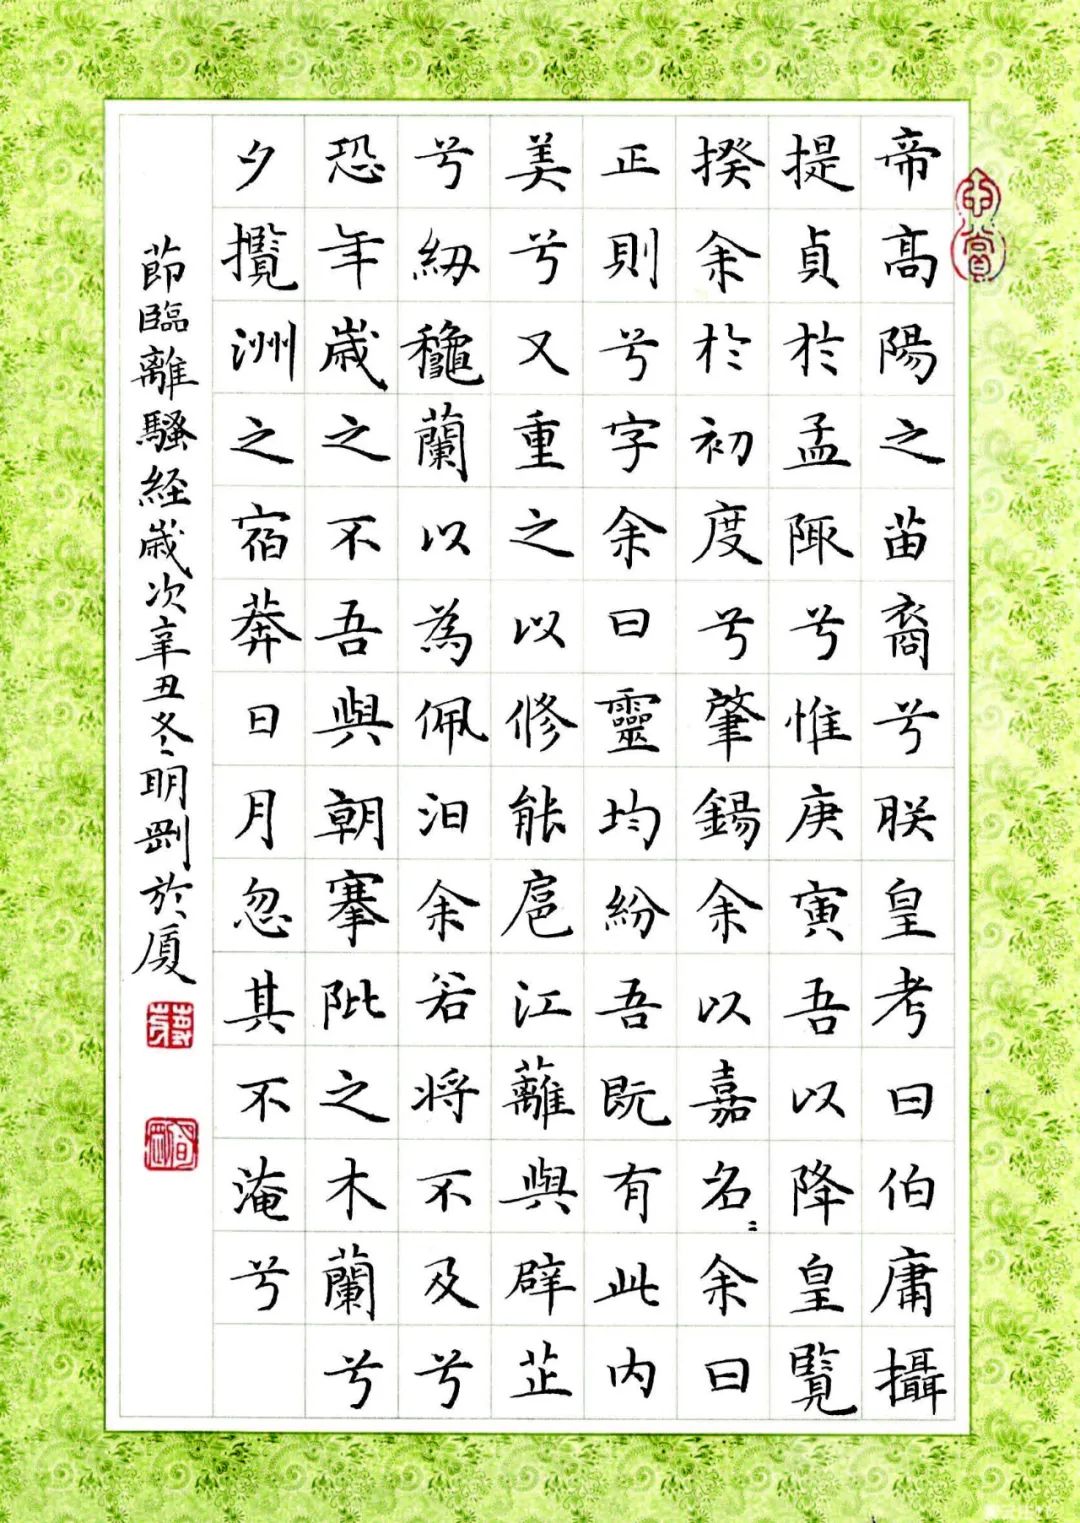 帝高陽之苗裔兮朕皇考曰伯庸攝
提貞於孟陬兮惟庚寅吾以降皇覽
揆余於初度兮肇錫余以嘉名〻余曰
正則兮字余曰靈均紛吾既有此内
美兮又重之以修能扈江蘺與辟芷
兮紉穐蘭以為佩汨余若将不及兮
恐年歲之不吾與朝搴阰之木蘭兮
夕攬洲之宿莽日月忽其不淹兮
莭臨離騷経歲次辛丑冬明剛於廈